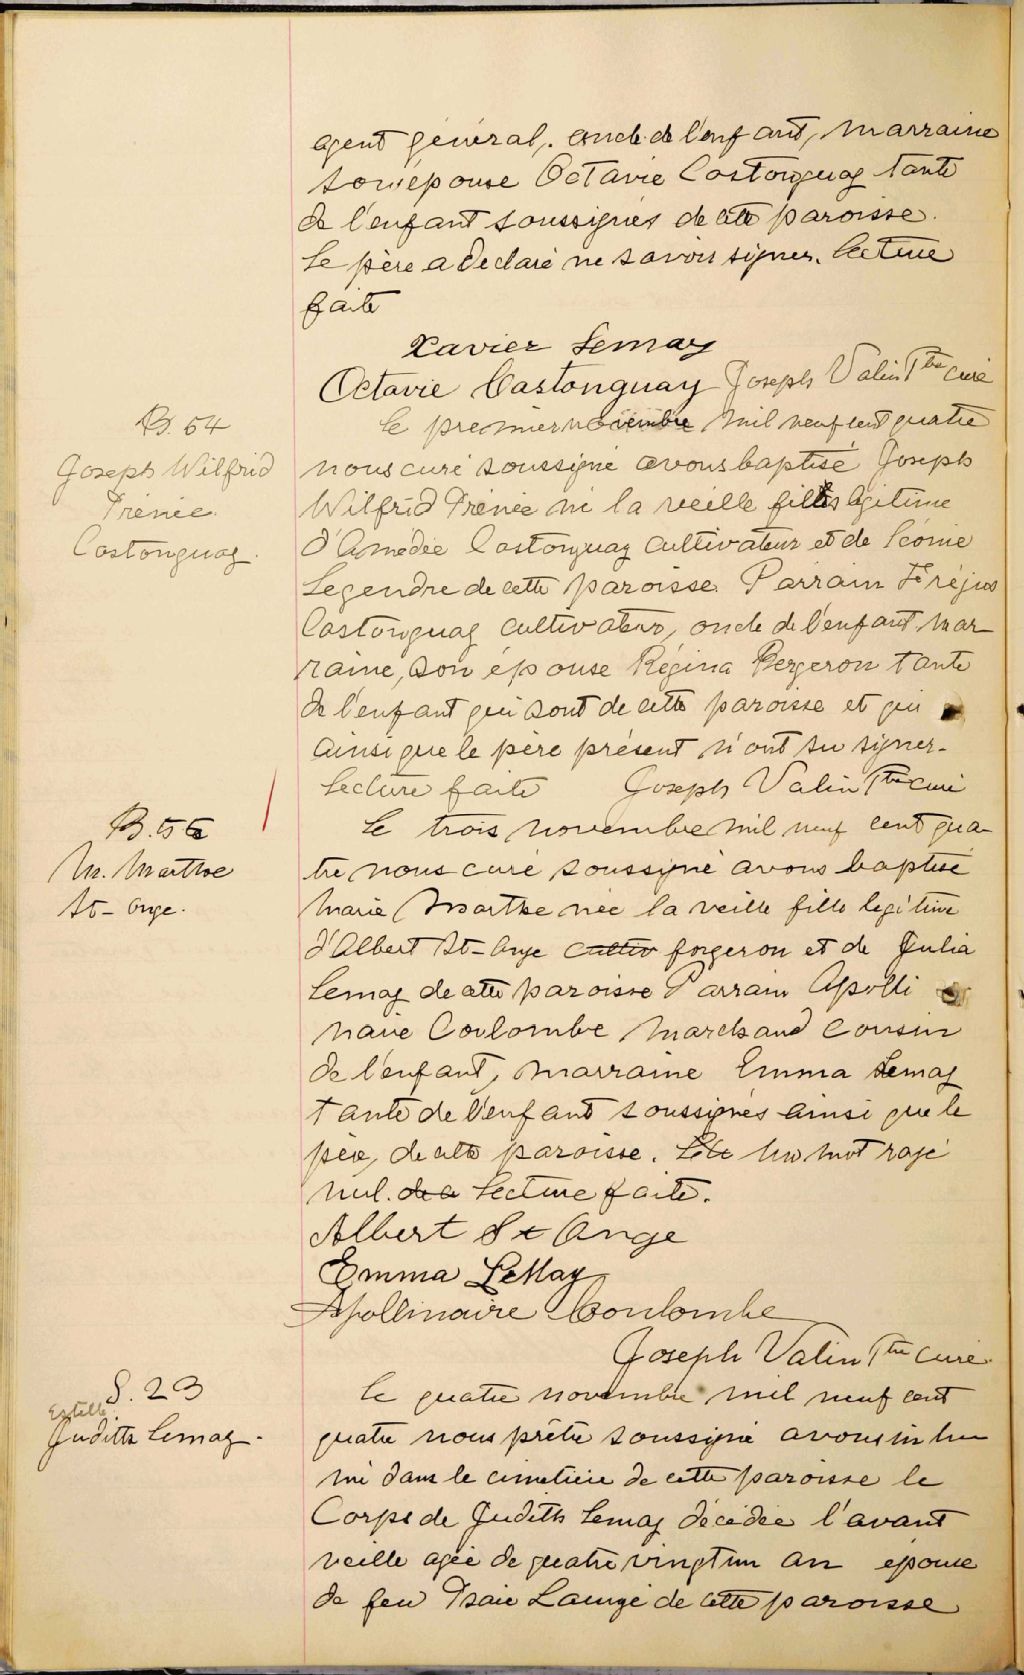 agent général, oncle de l'enfant, marraine
son épouse Octavie Castonguay tante
de l'enfant soussignés de cette paroisse.
Le père a déclaré ne savoir signer. Lecture
faite
Xavier Lemay
Octavie Castonguay Joseph Valin Ptre curé
B. 54
Joseph Wilfrid
Irénée
Castonguay.
Le premier novembre mil neuf cent quatre
nous curé soussigné avons baptisé Joseph
Wilfrid Irénée né la veille fils légitime
d'Amédée Castonguay cultivateur et de Léonie
Legendre de cette paroisse. Parrain Fréjus
Castonguay cultivateur, oncle de l'enfant mar-
raine, son épouse Régina Bergeron tante
de l'enfant qui sont de cette paroisse et qui
ainsi que le père présent n'ont su signer.
Lecture faite Joseph Valin Ptre curé
B. 55
M. Marthe
St-Ange.
Le trois novembre mil neuf cent qua-
tre nous curé soussigné avons baptisé
Marie Marthe née la veille fille legitime
d'Albert St-Ange cultiv forgeron et de Julia
Lemay de cette paroisse Parrain Apolli
naire Coulombe marchand cousin
de l'enfant, marraine Emma Lemay
tante de l'enfant soussignés ainsi que le
père, de cette paroisse. Un mot rayé
nul. Lecture faite.
Albert St Ange
Emma LeMay
Apollinaire Coulombe
Joseph Valin Ptre curé.
S. 23
Estelle
Judith Lemay.
Le quatre novembre mil neuf cent
quatre nous prêtre soussigné avons inhu
mé dans le cimetière de cette paroisse le
Corps de Judith Lemay décédée l'avant
veille agée de quatre vingt un an épouse
de feu Isaie Laugé de cette paroisse